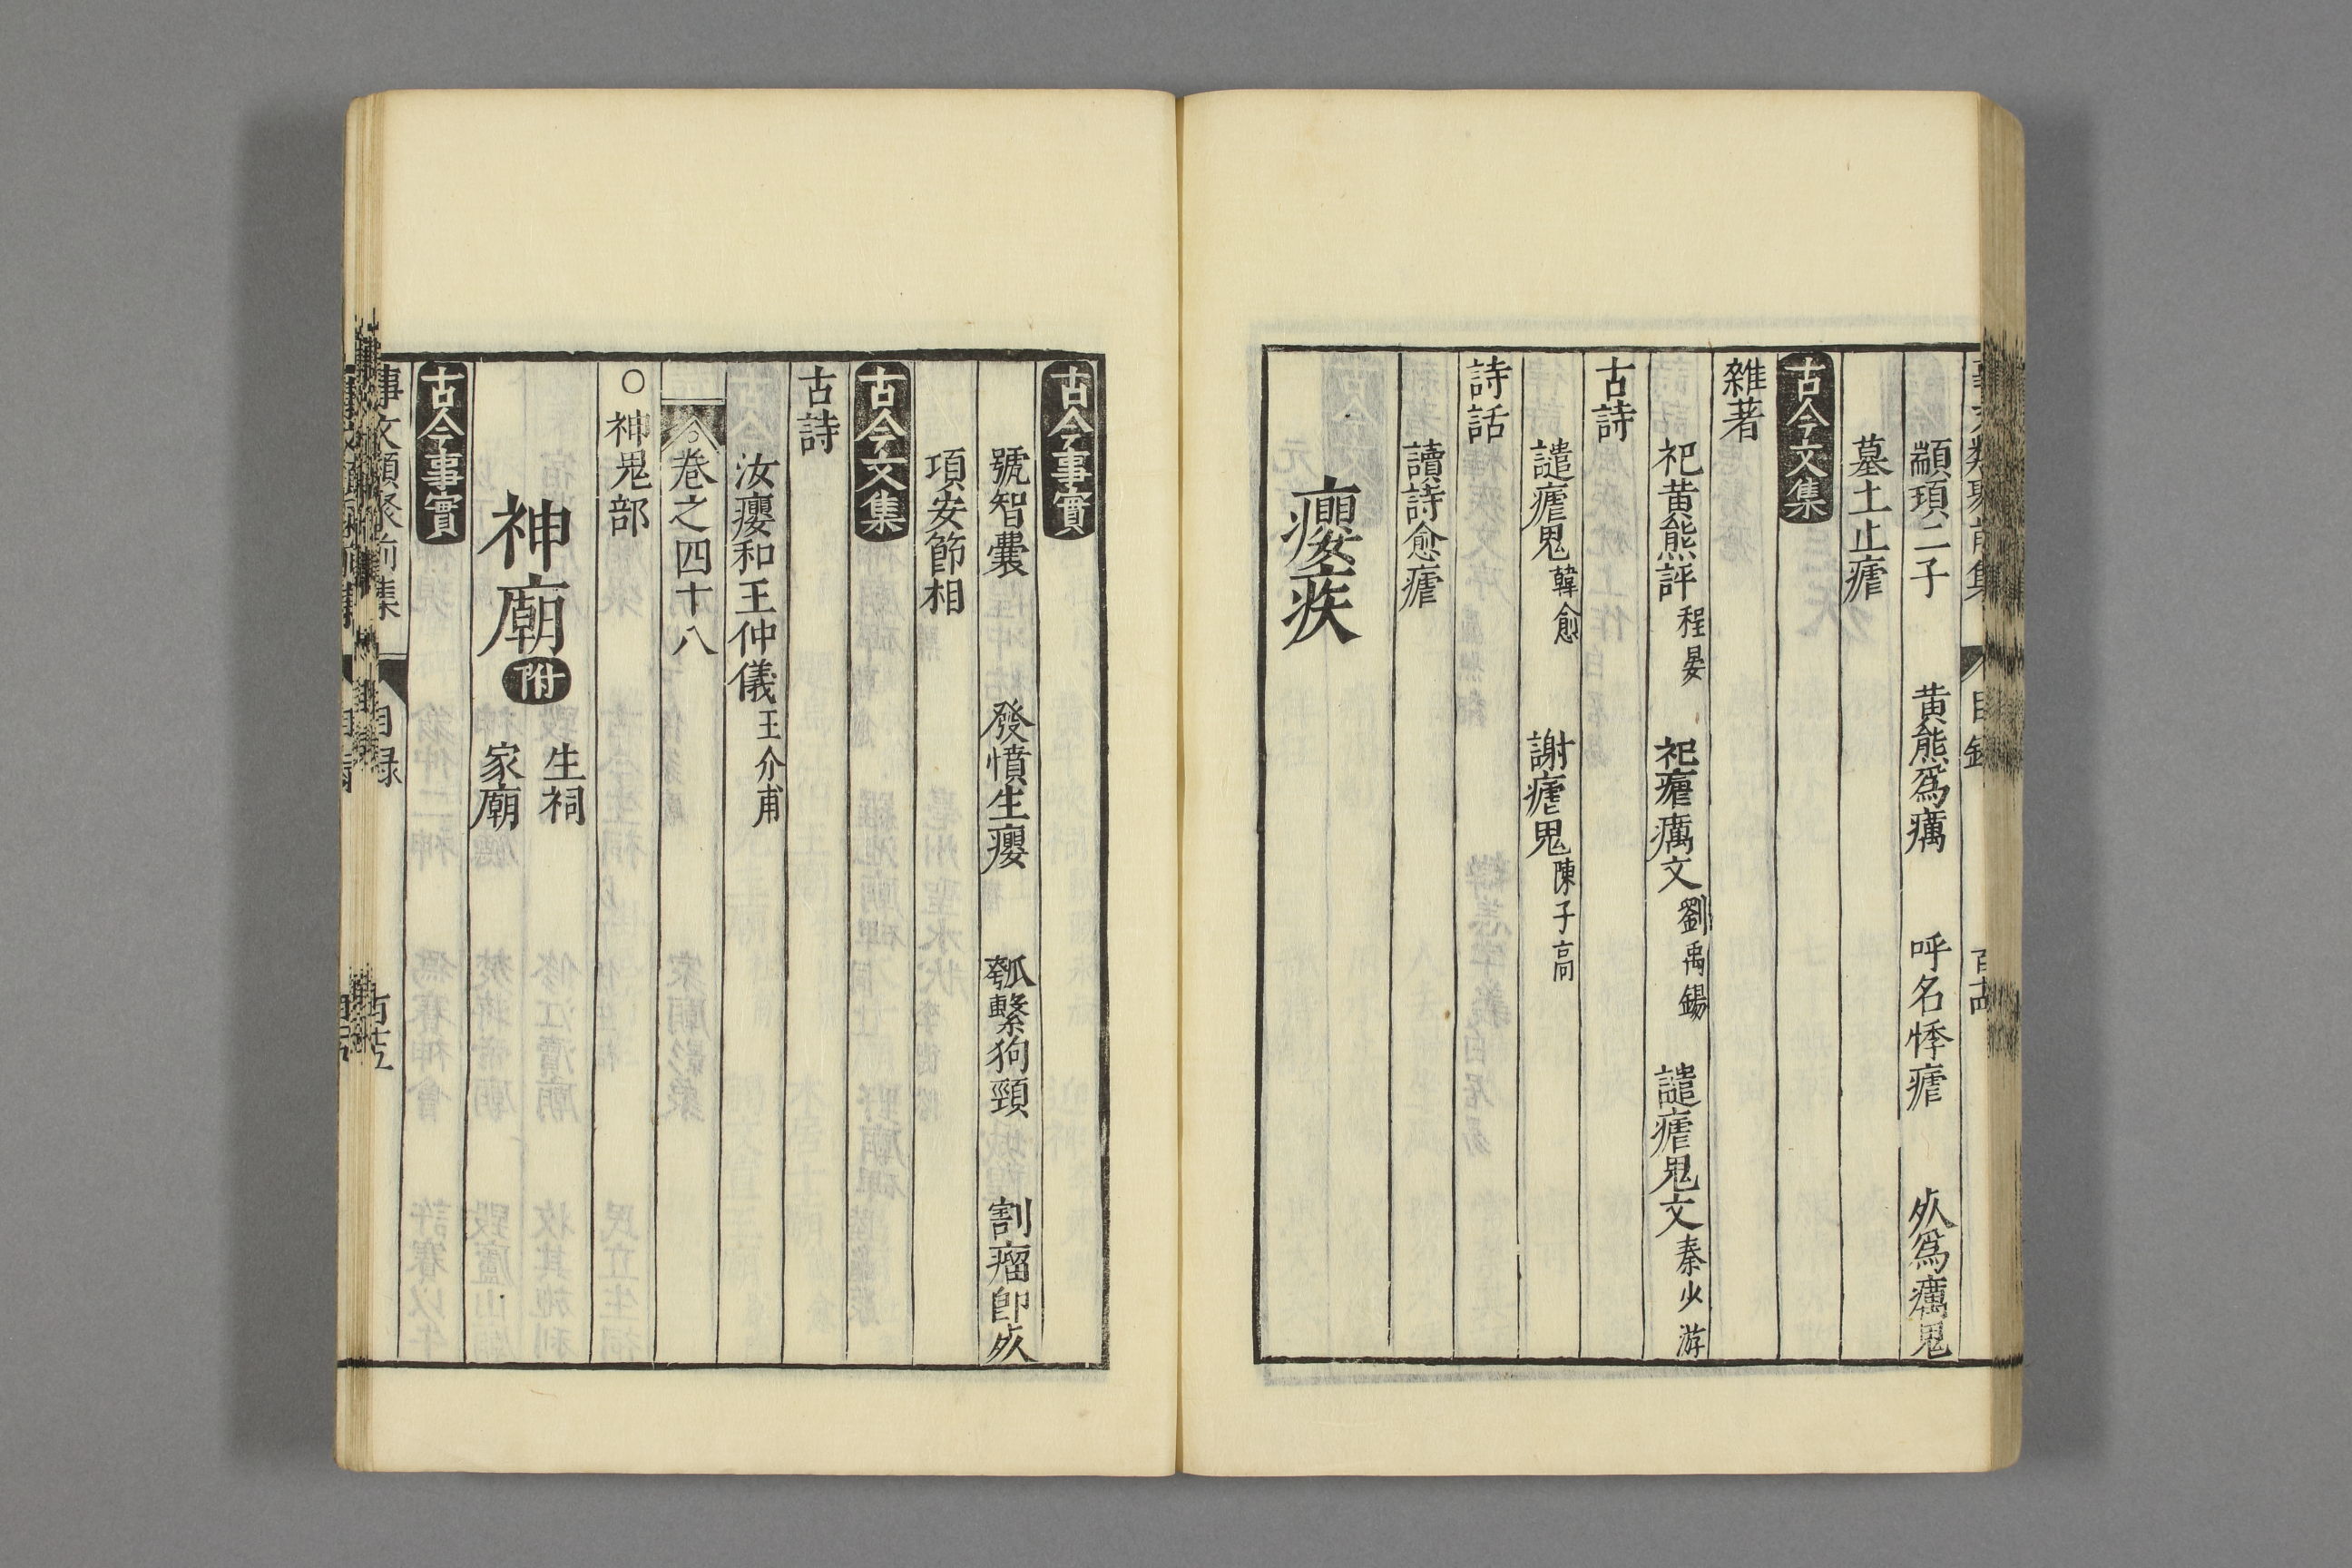 顓頊二子　黄熊爲癘　呼名悸瘧　𣦸爲癘鬼
墓土止瘧
古今文集
雜著
祀黄熊評程晏　祀瘧癘文劉禹錫　譴瘧鬼文秦少游
古詩
譴瘧鬼韓愈　謝瘧鬼陳子高
詩話
讀詩愈瘧
癭疾
古今事實
號智囊　發憤生癭　瓠繫狗頸　割瘤卽𣦸
項安節相
古今文集
古詩
汝癭和王仲儀王介甫
卷之四十八
○神鬼部
神廟附　生祠　家廟
古今事實
事文類聚前集　目録